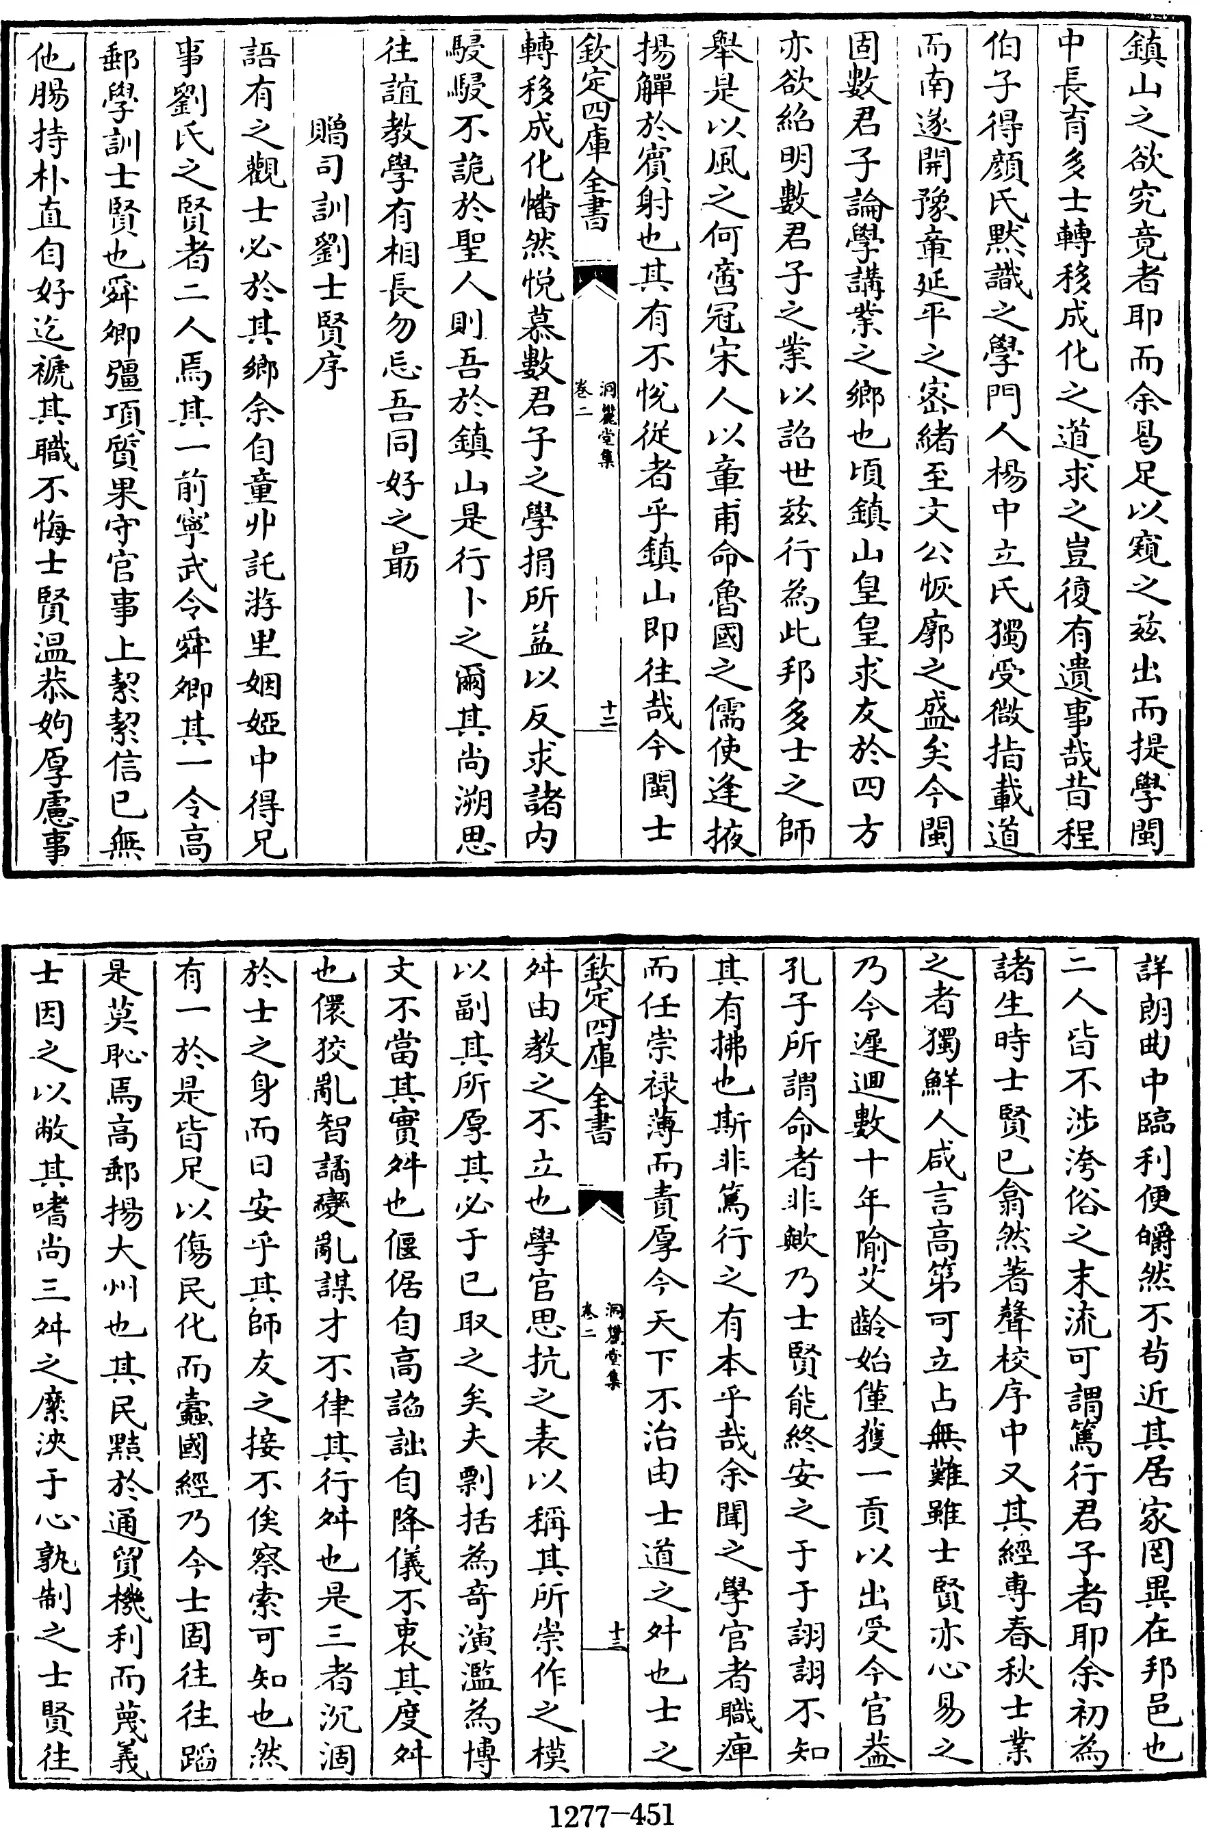 鎮山之欲究竟者耶而余曷足以窺之兹出而提學閩
中長育多士轉移成化之道求之豈復有遺事哉昔程
伯子得顔氏默識之學門人楊中立氏獨受微指載道
而南遂開豫章延平之密緒至文公恢廓之盛矣今閩
固數君子論學講業之鄉也頃鎮山皇皇求友於四方
亦欲紹明數君子之業以詔世兹行為此邦多士之師
舉是以風之何啻冠宋人以章甫命魯國之儒使逢掖
揚觶於賓射也其有不悅從者乎鎮山即往哉今閩士
欽定四庫全書
洞麓堂集
卷二
十二
轉移成化憣然悅慕數君子之學捐所益以反求諸内
駸駸不詭於聖人則吾於鎮山是行卜之爾其尚溯思
往誼教學有相長勿忘吾同好之最
贈司訓劉士賢序
語有之觀士必於其鄉余自童丱託游里姻婭中得兄
事劉氏之賢者二人焉其一前寧武令舜卿其一令高
郵學訓士賢也舜卿彊項質果守官事上絜絜信已無
他腸持朴直自好迄褫其職不悔士賢温恭姁厚慮事
詳朗曲中臨利便皭然不茍近其居家罔異在邦邑也
二人皆不涉洿俗之末流可謂篤行君子者耶余初為
諸生時士賢已翕然著聲校序中又其經專春秋士業
之者獨鮮人咸言高第可立占無難雖士賢亦心易之
乃今遲迴數十年隃艾齡始僅獲一貢以出受今官葢
孔子所謂命者非歟乃士賢能終安之于于詡詡不知
其有拂也斯非篤行之有本乎哉余聞之學官者職庳
而任崇禄薄而責厚今天下不治由士道之舛也士之
欽定四庫全書
洞麓堂集
卷二
十三
舛由教之不立也學官思抗之表以稱其所崇作之模
以副其所厚其必于已取之矣夫剽括為奇演濫為博
文不當其實舛也偃倨自高諂詘自降儀不衷其度舛
也儇狡亂智譎變亂謀才不律其行舛也是三者沉涸
於士之身而日安乎其師友之接不俟察索可知也然
有一於是皆足以傷民化而蠹國經乃今士固往往蹈
是莫恥焉高郵揚大州也其民黠於通貿機利而蔑義
士因之以敝其嗜尚三舛之縻泱于心孰制之士賢往
1277-451